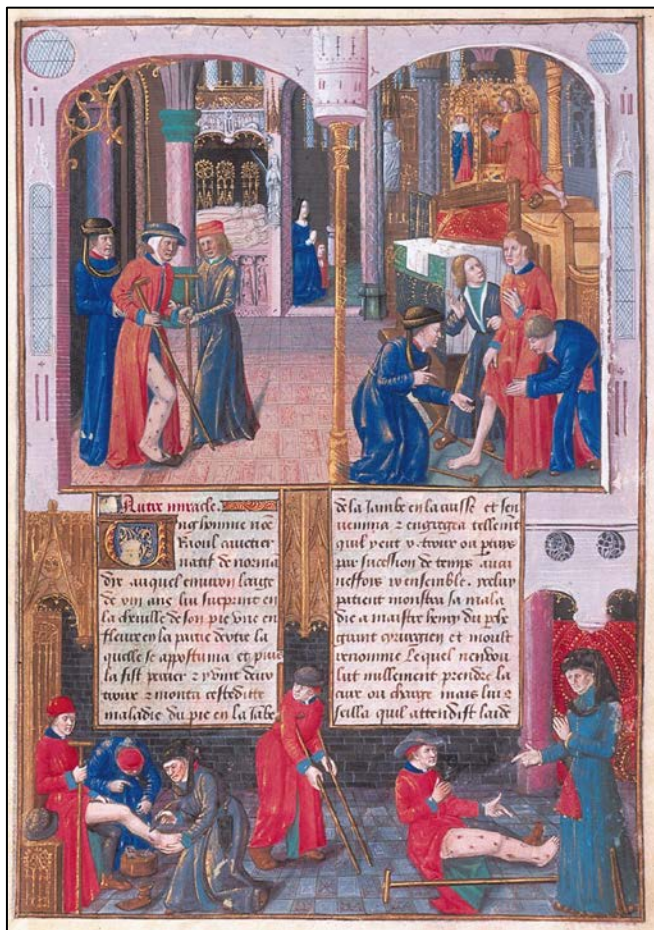 Autre miracle.
Ung homme nõe
Rioul
natif de norma
die auquel enuiron laige
de viii ans lui surprint en
la cheuille de son pie vne en
fleure en la partie dextre la
quelle se apostuma et puis
la fist percier ꝛ y vint deux
troux ꝛ monta ceste ditte
maladie du pie en la Jābe
de la Jambe en la cuisse et sen
uenima ꝛ engregea tellemt
quil yeut v. troux ou pluys
par sucession de temps aucu
neffois ensemble. Jcelluy
patient monstra sa mala
die a maistre henry du
cyrurgien et moult
renomme Lequel nen vou
lut nullement prendre la
cure ou charge mais lui
seilla quil attendist laide